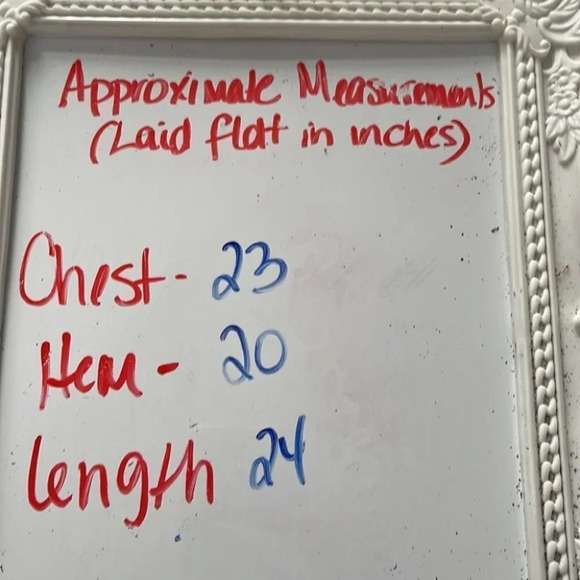 Approximate Measurements
(Laid flat in inches)
Chest - 23
Hem - 20
length 24